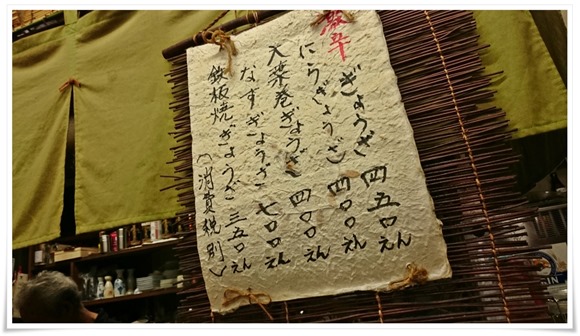 激辛ぎょうざ 四五〇えん
にらぎょうざ 四〇〇えん
大葉巻ぎょうざ 四〇〇えん
なすぎょうざ 七〇〇えん
鉄板焼ぎょうざ 三五〇えん
(消費税別)